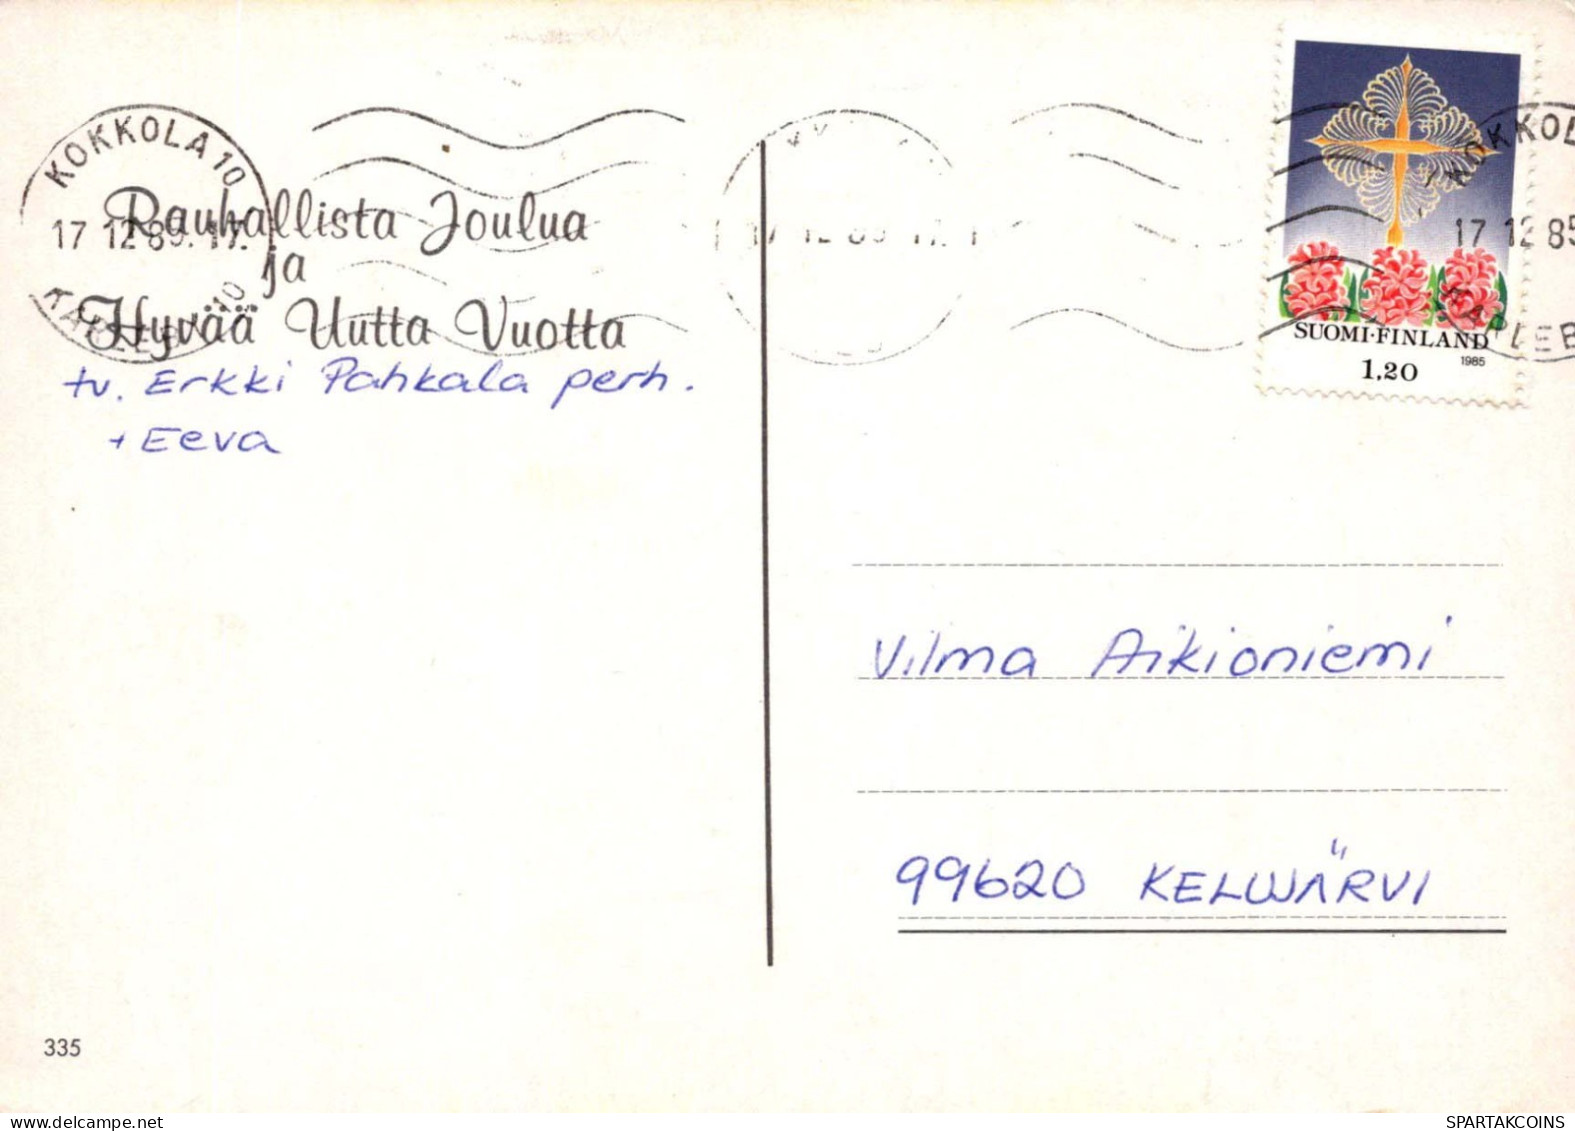 KOKKOLA 10
17 12 85. 17.
KARLEBY 10
Rauhallista Joulua
ja
Hyvää Uutta Vuotta
tv. Erkki Pahkala perh.
+ Eeva
335
SUOMI·FINLAND
1,20
1985
KOKKOLA
17 12 85
KARLEB
Vilma Aikioniemi
99620 KELUJÄRVI
www.delcampe.net
SPARTAKCOINS